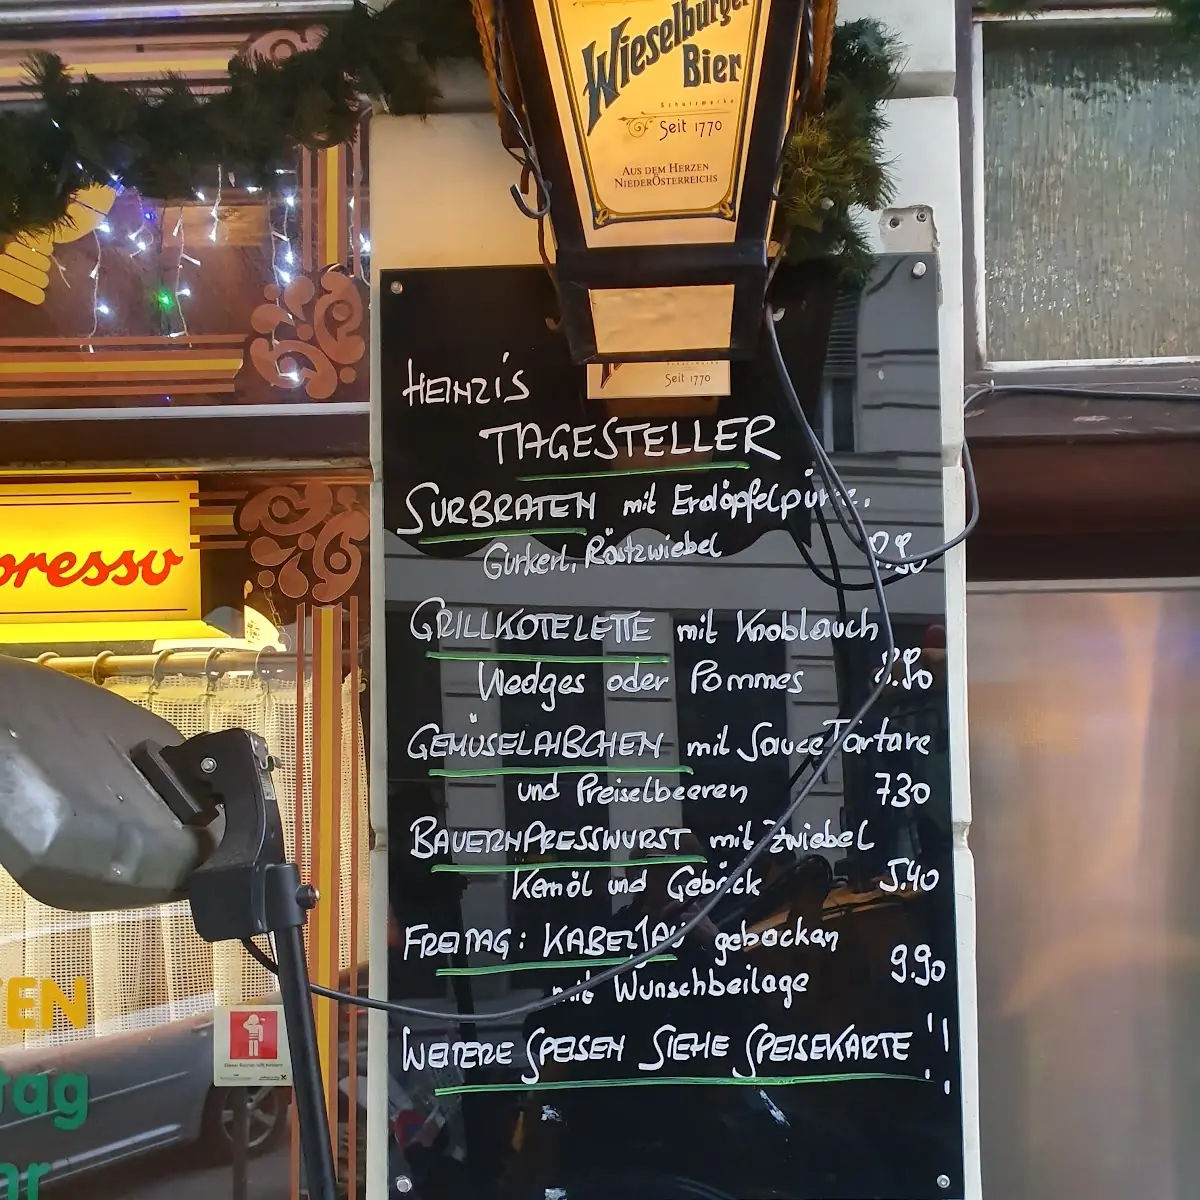 Wieselburger
Bier
Schutzmarke
Seit 1770
AUS DEM HERZEN
NIEDERÖSTERREICHS
Seit 1770
HEINZI'S
TAGESTELLER
SURBRATEN mit Erdöpfelpüree.
Gurkerl, Röstzwiebel
GRILLKOTELETTE mit Knoblauch
Wedges oder Pommes 8.90
GEMÜSELAIBCHEN mit Sauce Tartare
und Preiselbeeren 7.30
BAUERNPRESSWURST mit Zwiebel
Kernöl und Gebäck 5.40
FREITAG: KABELJAU gebacken
mit Wunschbeilage 9.90
WEITERE SPEISEN SIEHE SPEISEKARTE !!
presso
TEN
tag
hr